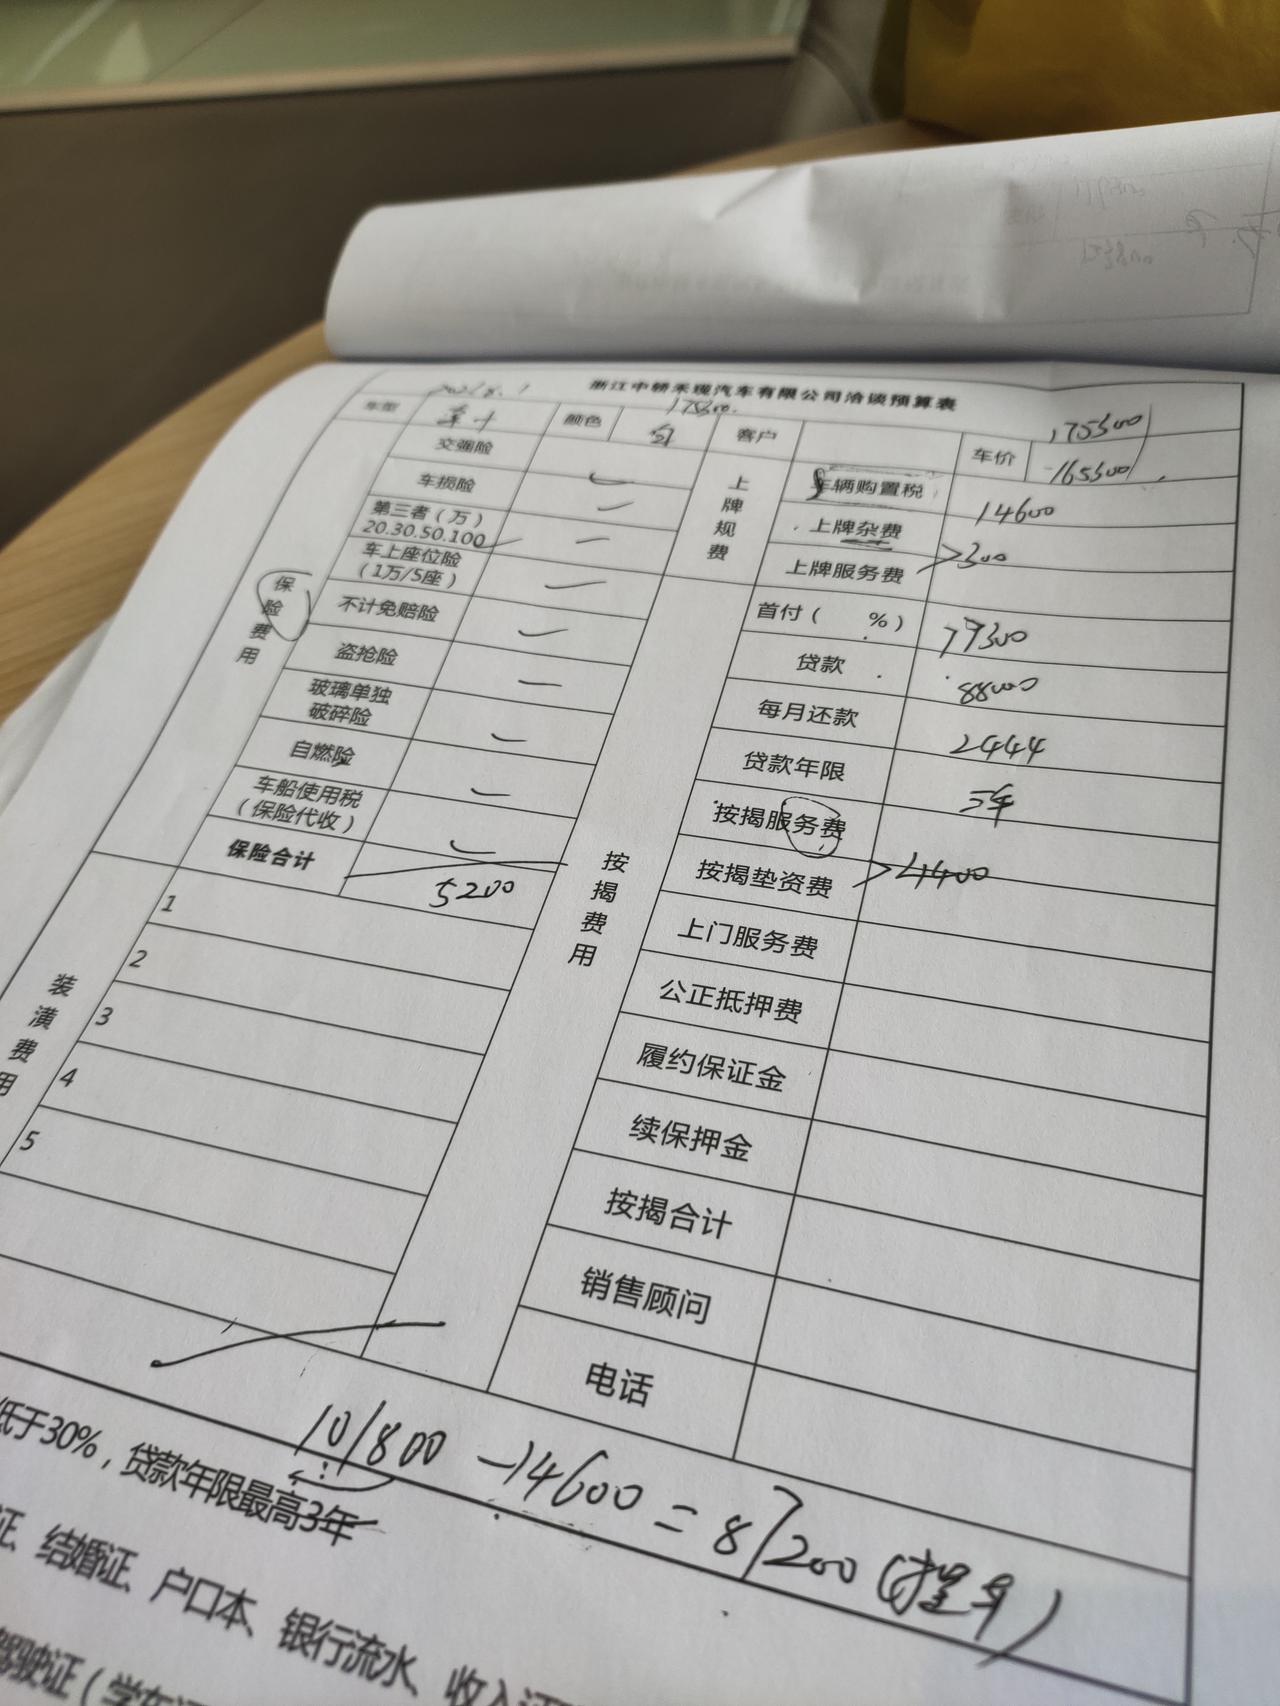 浙江中轿禾现汽车有限公司洽谈预算表
175300.
车型 颜色 白 客户 车价 175300
-165300
保险费用
交强险
车损险
第三者（万）
20.30.50.100
车上座位险
（1万/5座）
不计免赔险
盗抢险
玻璃单独
破碎险
自燃险
车船使用税
（保险代收）
保险合计 5200
装潢费用
1
2
3
4
5
上牌规费
车辆购置税 14600
上牌杂费
上牌服务费 300
按揭费用
首付（ %） 79300
贷款 88000
每月还款 2444
贷款年限 三年
按揭服务费
按揭垫资费 4400
上门服务费
公正抵押费
履约保证金
续保押金
按揭合计
销售顾问
电话
101800 -14600 = 87200 (提车)
低于30%，贷款年限最高3年
证、结婚证、户口本、银行流水、收入证
驾驶证（学车证